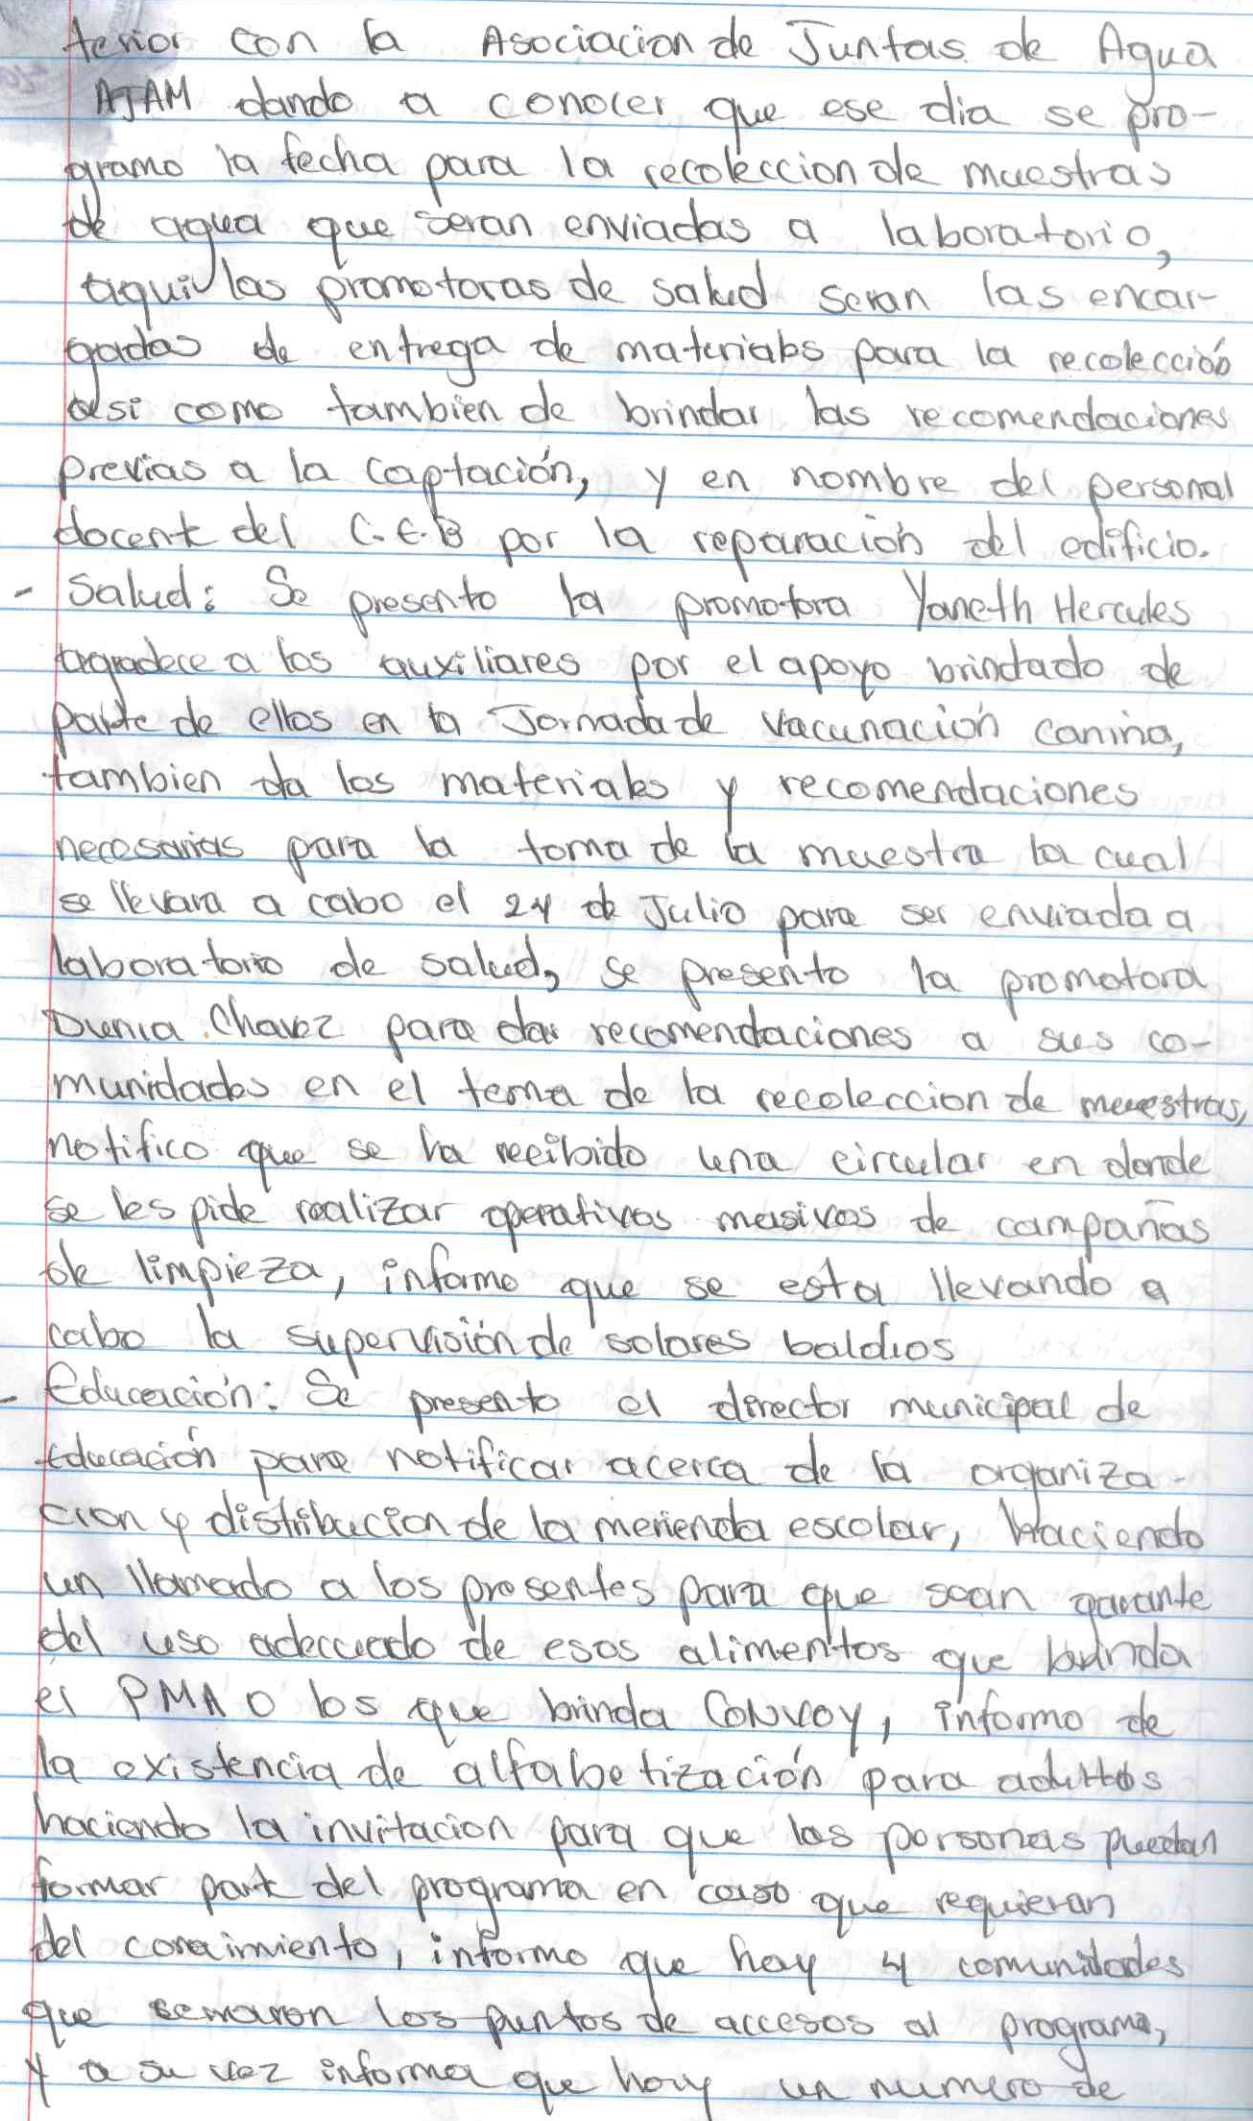 terior con la Asociacion de Juntas de Agua
AJAM dando a conocer que ese dia se pro-
gramo la fecha para la recoleccion de muestras
de agua que seran enviadas a laboratorio,
aqui las promotoras de salud seran las encar-
gadas de entrega de materiales para la recolección
asi como tambien de brindar las recomendaciones
previas a la captación, y en nombre del personal
docente del C.E.B por la reparación del edificio.
- Salud: Se presento la promotora Yaneth Hercules
agradece a los auxiliares por el apoyo brindado de
parte de ellos en la Jornada de Vacunación canina,
tambien da los materiales y recomendaciones
necesarias para la toma de la muestra la cual
se llevara a cabo el 24 de Julio para ser enviada a
laboratorio de salud, se presento la promotora
Dunia Chavez para dar recomendaciones a sus co-
munidades en el tema de la recoleccion de muestras,
notifico que se ha recibido una circular en donde
se les pide realizar operativos masivos de campañas
de limpieza, informo que se esta llevando a
cabo la supervisión de solares baldios
- Educación: Se presento el director municipal de
Educación para notificar acerca de la organiza-
cion y distribucion de la merienda escolar, Haciendo
un llamado a los presentes para que sean garante
del uso adecuado de esos alimentos que brinda
el PMA o los que brinda CONVOY, informo de
la existencia de alfabetización para adultos
haciendo la invitacion para que las personas puedan
formar parte del programa en caso que requieran
del conocimiento, informo que hay 4 comunidades
que cerraron los puntos de accesos al programa,
y a su vez informa que hay un numero de